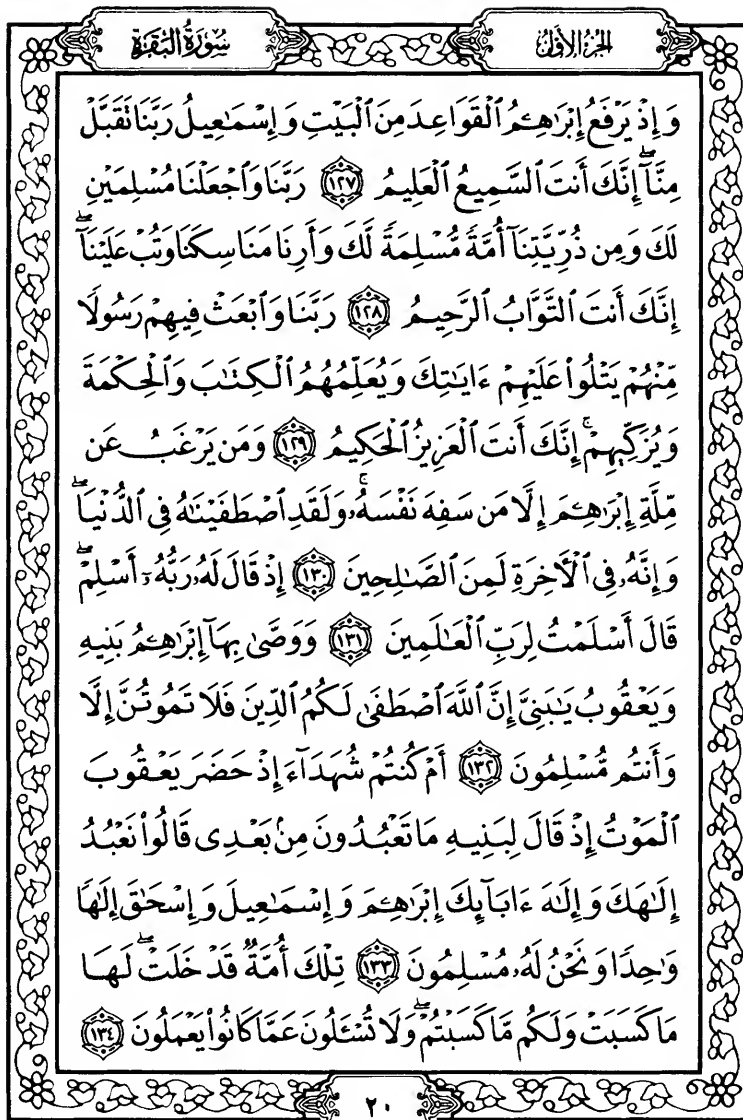 الجُزْءُ الأَوَّلُ
سُورَةُ البَقَرَةِ
وَإِذْ يَرْفَعُ إِبْرَٰهِـۧمُ ٱلْقَوَاعِدَ مِنَ ٱلْبَيْتِ وَإِسْمَٰعِيلُ رَبَّنَا تَقَبَّلْ
مِنَّآۖ إِنَّكَ أَنتَ ٱلسَّمِيعُ ٱلْعَلِيمُ ١٢٧ رَبَّنَا وَٱجْعَلْنَا مُسْلِمَيْنِ
لَكَ وَمِن ذُرِّيَّتِنَآ أُمَّةً مُّسْلِمَةً لَّكَ وَأَرِنَا مَنَاسِكَنَا وَتُبْ عَلَيْنَآۖ
إِنَّكَ أَنتَ ٱلتَّوَّابُ ٱلرَّحِيمُ ١٢٨ رَبَّنَا وَٱبْعَثْ فِيهِمْ رَسُولًا
مِّنْهُمْ يَتْلُوا۟ عَلَيْهِمْ ءَايَٰتِكَ وَيُعَلِّمُهُمُ ٱلْكِتَٰبَ وَٱلْحِكْمَةَ
وَيُزَكِّيهِمْۚ إِنَّكَ أَنتَ ٱلْعَزِيزُ ٱلْحَكِيمُ ١٢٩ وَمَن يَرْغَبُ عَن
مِّلَّةِ إِبْرَٰهِـۧمَ إِلَّا مَن سَفِهَ نَفْسَهُۥۚ وَلَقَدِ ٱصْطَفَيْنَٰهُ فِى ٱلدُّنْيَاۖ
وَإِنَّهُۥ فِى ٱلْأَخِرَةِ لَمِنَ ٱلصَّٰلِحِينَ ١٣٠ إِذْ قَالَ لَهُۥ رَبُّهُۥٓ أَسْلِمْۖ
قَالَ أَسْلَمْتُ لِرَبِّ ٱلْعَٰلَمِينَ ١٣١ وَوَصَّىٰ بِهَآ إِبْرَٰهِـۧمُ بَنِيهِ
وَيَعْقُوبُ يَٰبَنِىَّ إِنَّ ٱللَّهَ ٱصْطَفَىٰ لَكُمُ ٱلدِّينَ فَلَا تَمُوتُنَّ إِلَّا
وَأَنتُم مُّسْلِمُونَ ١٣٢ أَمْ كُنتُمْ شُهَدَآءَ إِذْ حَضَرَ يَعْقُوبَ
ٱلْمَوْتُ إِذْ قَالَ لِبَنِيهِ مَا تَعْبُدُونَ مِنۢ بَعْدِى قَالُوا۟ نَعْبُدُ
إِلَٰهَكَ وَإِلَٰهَ ءَابَآئِكَ إِبْرَٰهِـۧمَ وَإِسْمَٰعِيلَ وَإِسْحَٰقَ إِلَٰهًا
وَٰحِدًا وَنَحْنُ لَهُۥ مُسْلِمُونَ ١٣٣ تِلْكَ أُمَّةٌ قَدْ خَلَتْۖ لَهَا
مَا كَسَبَتْ وَلَكُم مَّا كَسَبْتُمْۖ وَلَا تُسْـَٔلُونَ عَمَّا كَانُوا۟ يَعْمَلُونَ ١٣٤
٢٠